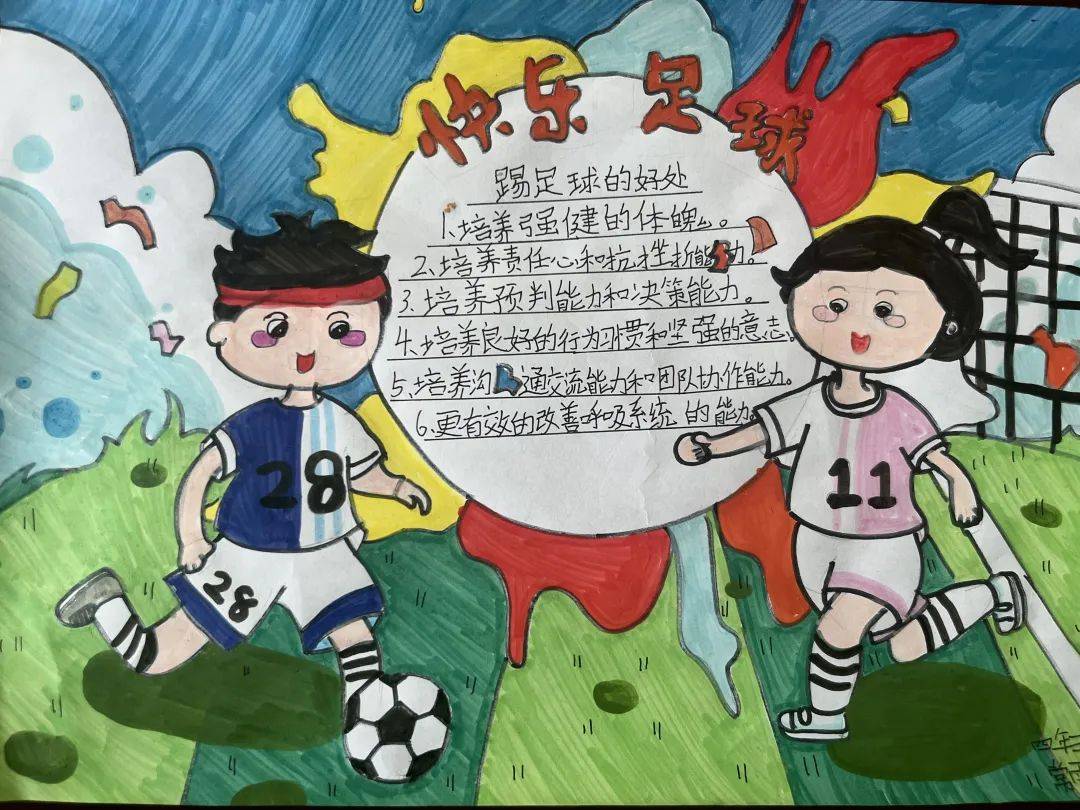 快乐足球
踢足球的好处
1.培养强健的体魄。
2.培养责任心和抗挫折能力。
3.培养预判能力和决策能力。
4.培养良好的行为习惯和坚强的意志。
5.培养沟通交流能力和团队协作能力。
6.更有效的改善呼吸系统的能力。
28
28
11
四年